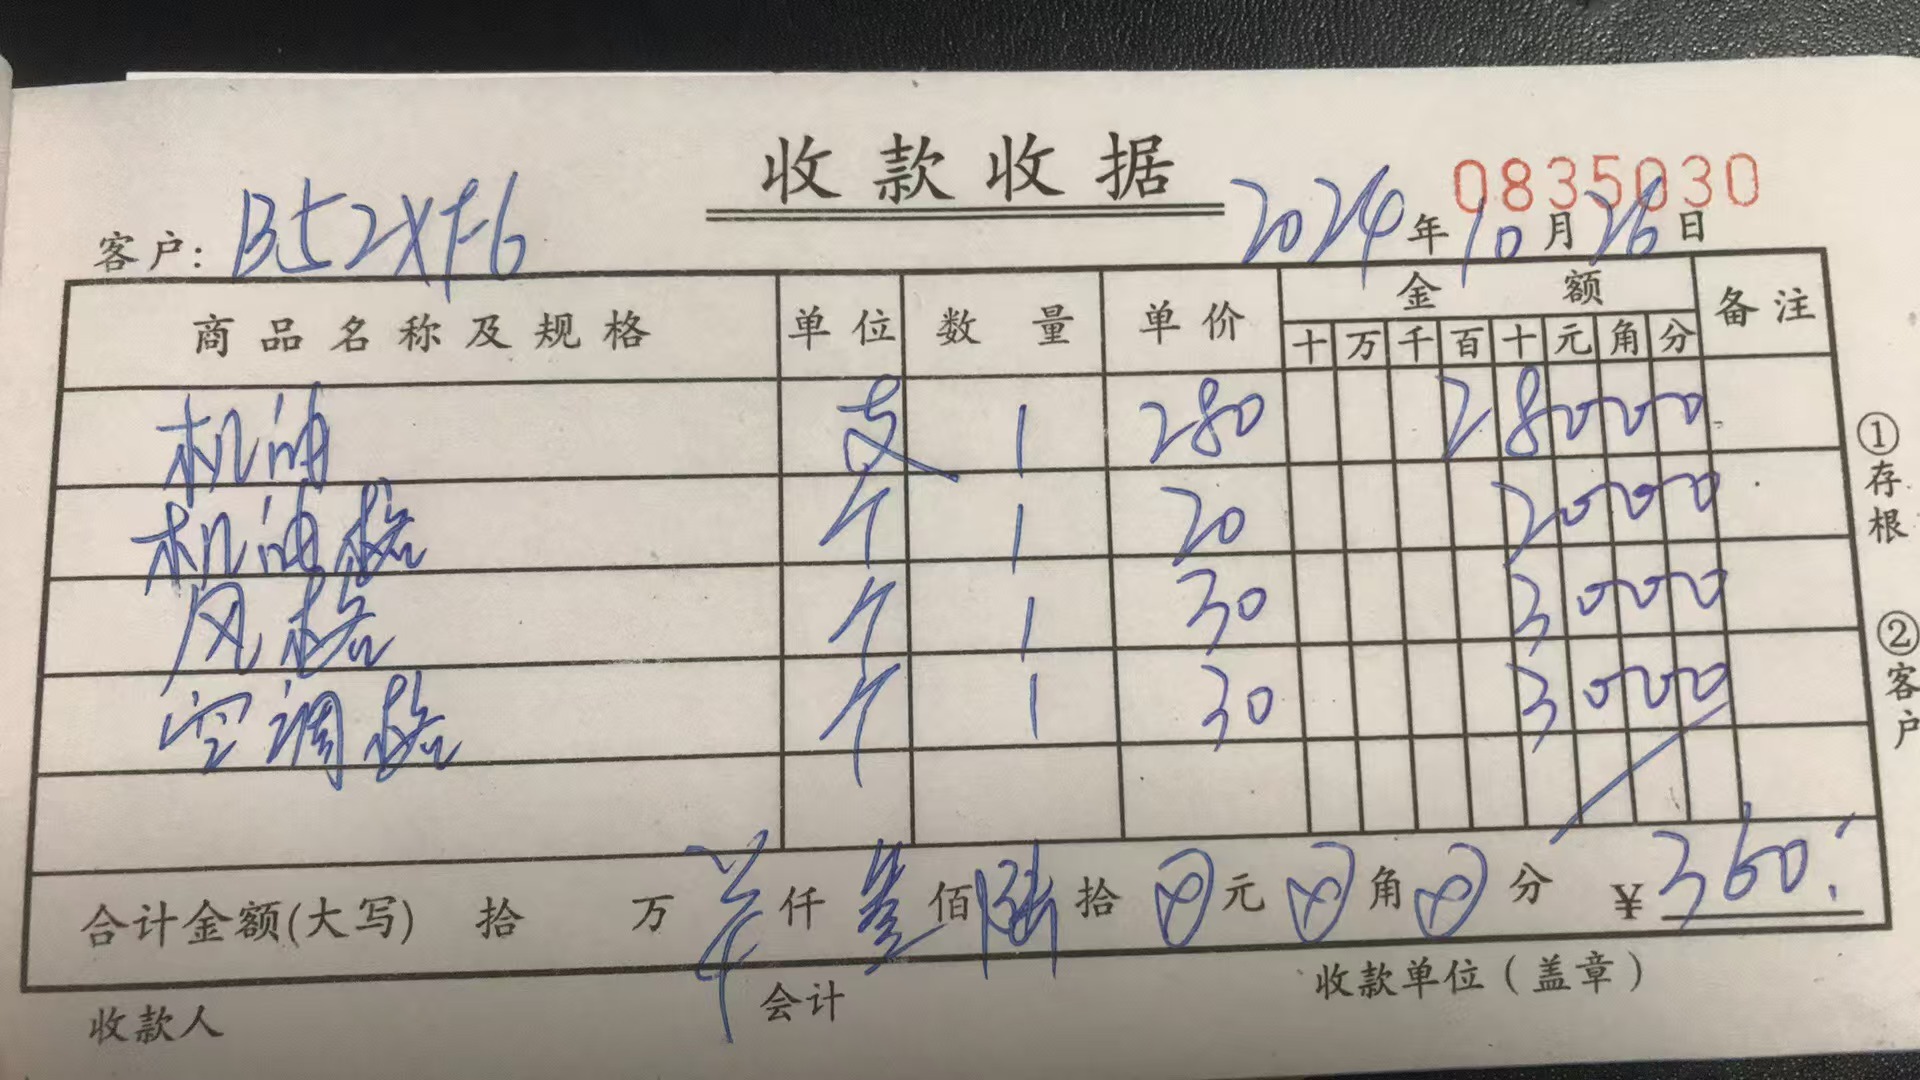 收款收据
0835030
客户: B52XF6 2024年10月26日
商品名称及规格 单位 数量 单价 金额 备注
十 万 千 百 十 元 角 分
机油 支 1 280 28000
机油格 个 1 20 2000
风格 个 1 30 3000
空调格 个 1 30 3000
合计金额(大写) 拾 万 仟 叁佰陆拾 0元 0角 0分 ¥360.
收款人 会计 收款单位(盖章)
①存根
②客户